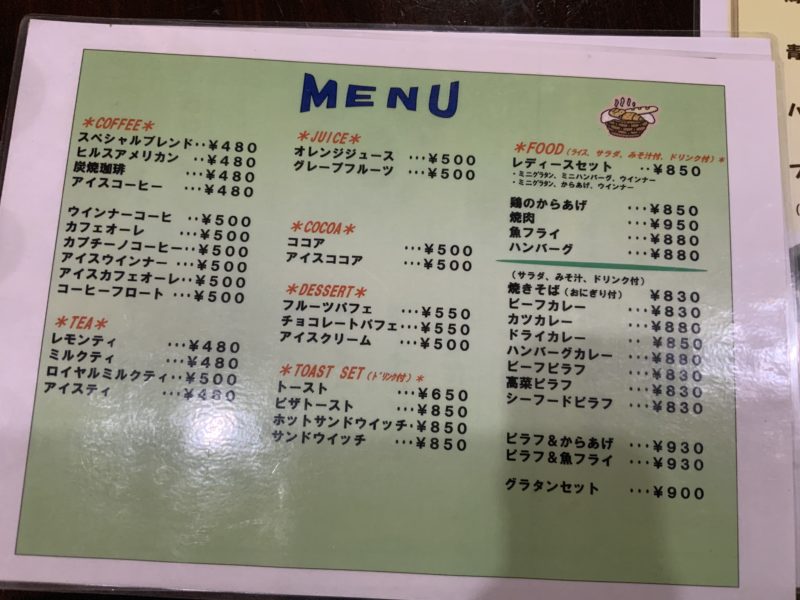 MENU
*COFFEE*
スペシャルブレンド‥¥480
ヒルスアメリカン ‥¥480
炭焼珈琲 …¥480
アイスコーヒー …¥480
ウインナーコーヒ ‥¥500
カフェオーレ …¥500
カプチーノコーヒー‥¥500
アイスウインナー …¥500
アイスカフェオーレ‥¥500
コーヒーフロート …¥500
*TEA*
レモンティ …¥480
ミルクティ …¥480
ロイヤルミルクティ‥¥500
アイスティ …¥480
*JUICE*
オレンジジュース …¥500
グレープフルーツ …¥500
*COCOA*
ココア …¥500
アイスココア …¥500
*DESSERT*
フルーツパフェ …¥550
チョコレートパフェ…¥550
アイスクリーム …¥500
*TOAST SET(ﾄﾞﾘﾝｸ付)*
トースト …¥650
ピザトースト …¥850
ホットサンドウイッチ‥¥850
サンドウイッチ …¥850
*FOOD(ライス、サラダ、みそ汁付、ドリンク付)*
レディースセット ‥¥850
・ミニグラタン、ミニハンバーグ、ウインナー
・ミニグラタン、からあげ、ウインナー
鶏のからあげ …¥850
焼肉 …¥950
魚フライ …¥880
ハンバーグ …¥880
(サラダ、みそ汁、ドリンク付)
焼きそば(おにぎり付) ¥830
ビーフカレー …¥830
カツカレー …¥880
ドライカレー ‥ ¥850
ハンバーグカレー …¥880
ビーフピラフ …¥830
高菜ピラフ …¥830
シーフードピラフ …¥830
ピラフ&からあげ …¥930
ピラフ&魚フライ …¥930
グラタンセット …¥900
青